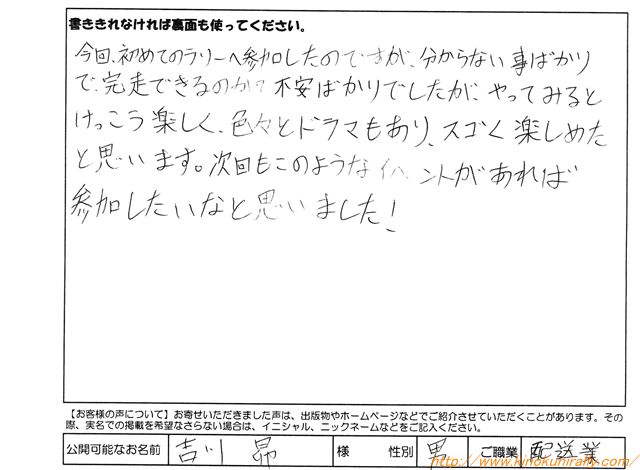 書ききれなければ裏面も使ってください。
今回、初めてのラリーへ参加したのですが、分からない事ばかり
で、完走できるのか?不安ばかりでしたが、やってみると
けっこう楽しく、色々とドラマもあり、スゴく楽しめた
と思います。次回もこのようなイベントがあれば
参加したいなと思いました!
【お客様の声について】お寄せいただきました声は、出版物やホームページなどでご紹介させていただくことがあります。その
際、実名での掲載を希望なさらない場合は、イニシャル、ニックネームなどをご記入ください。
公開可能なお名前 吉川 昴 様 性別 男 ご職業 配送業
http://www.kinokunirally.com/